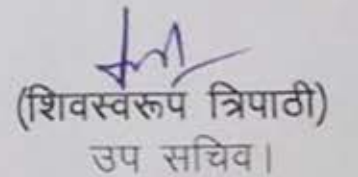 (शिवस्वरूप त्रिपाठी)
उप सचिव।